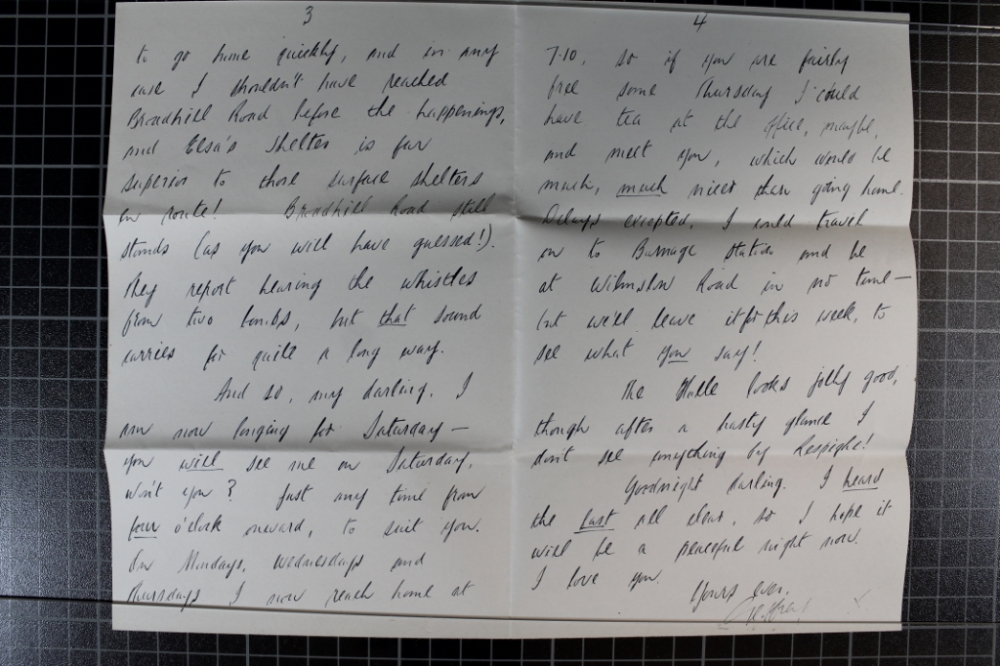 3
to go home quickly, and in any
case I shouldn't have reached
Broadhill Road before the happenings,
and Elsa's shelter is far
superior to those surface shelters
en route! Broadhill Road still
stands (as you will have guessed!).
They report hearing the whistles
from two bombs, but that sound
carries for quite a long way.
And so, my darling, I
am now longing for Saturday —
you will see me on Saturday,
won't you? Just any time from
four o'clock onward, to suit you.
On Mondays, Wednesdays and
Thursdays I now reach home at
4
7.10, so if you are fairly
free some Thursday I could
have tea at the office, maybe,
and meet you, which would be
much, much nicer than going home.
Delays excepted, I could travel
on to Burnage Station and be
at Wilmslow Road in no time —
but we'll leave it for this week, to
see what you say!
The Halle looks jolly good,
though after a hasty glance I
don't see anything by Respighi!
Goodnight darling. I heard
the last all clear, so I hope it
will be a peaceful night now.
I love you.
Yours ever,